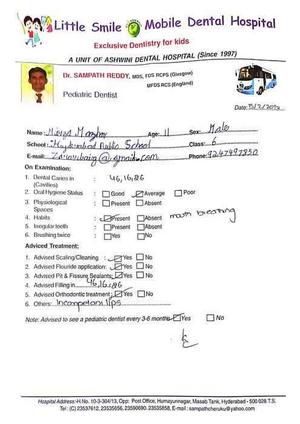 Little Smile Mobile Dental Hospital
Exclusive Dentistry for kids
A UNIT OF ASHWINI DENTAL HOSPITAL (Since 1997)
Dr. SAMPATH REDDY, MDS, FDS RCPS (Glasgow)
MFDS RCS (England)
Pediatric Dentist
Date:
Name: Age: 11 Sex: Male
School: Hyderabad Public School Class: 6
E-mail: @gmail.com Phone: 9247497830
On Examination:
1. Dental Caries in (Cavities) 46,16,26
2. Oral Hygiene Status : Good Average Poor
3. Physiological Spaces : Present Absent
4. Habits : Present Absent mouth breathing
5. Irregular teeth : Present Absent
6. Brushing twice : Yes No
Adviced Treatment:
1. Advised Scaling/Cleaning : Yes No
2. Advised Flouride application: Yes No
3. Advised Pit & Fissure Sealants: Yes No
4. Advised Filling in 46,16,26
5. Advised Orthodontic treatment : Yes No
6. Others: Incompetent lips
Note: Advised to see a pediatric dentist every 3-6 months Yes No
Hospital Address: H.No. 10-3-304/13, Opp: Post Office, Humayunnagar, Masab Tank, Hyderabad - 500 028 T.S.
Tel: (C) 23537612, 23535656, 23590690, 23535858, E-mail: sampathcheruku@yahoo.com